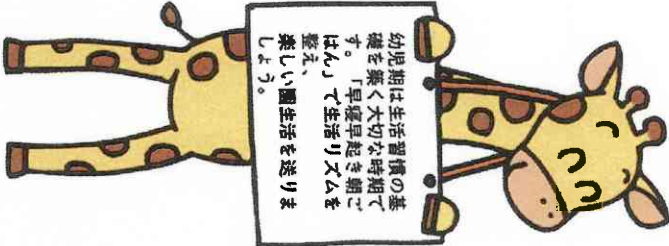 幼児期は生活習慣の基
礎を築く大切な時期で
す。「早寝早起き朝ご
はん」で生活リズムを
整え、
楽しい園生活を送りま
しょう。